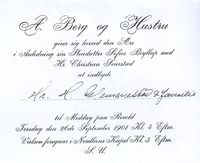 A. Borg og Hustru
giver sig herved den Ære
i Anledning sin Pleiedatter Sofies Bryllup med
Hr. Christian
at indbyde
Familie
til Middag paa
Torsdag den 26de September 1901 Kl. 4 Eftm.
Vielsen foregaar i Kapel Kl. 3 Eftm.
S. U.